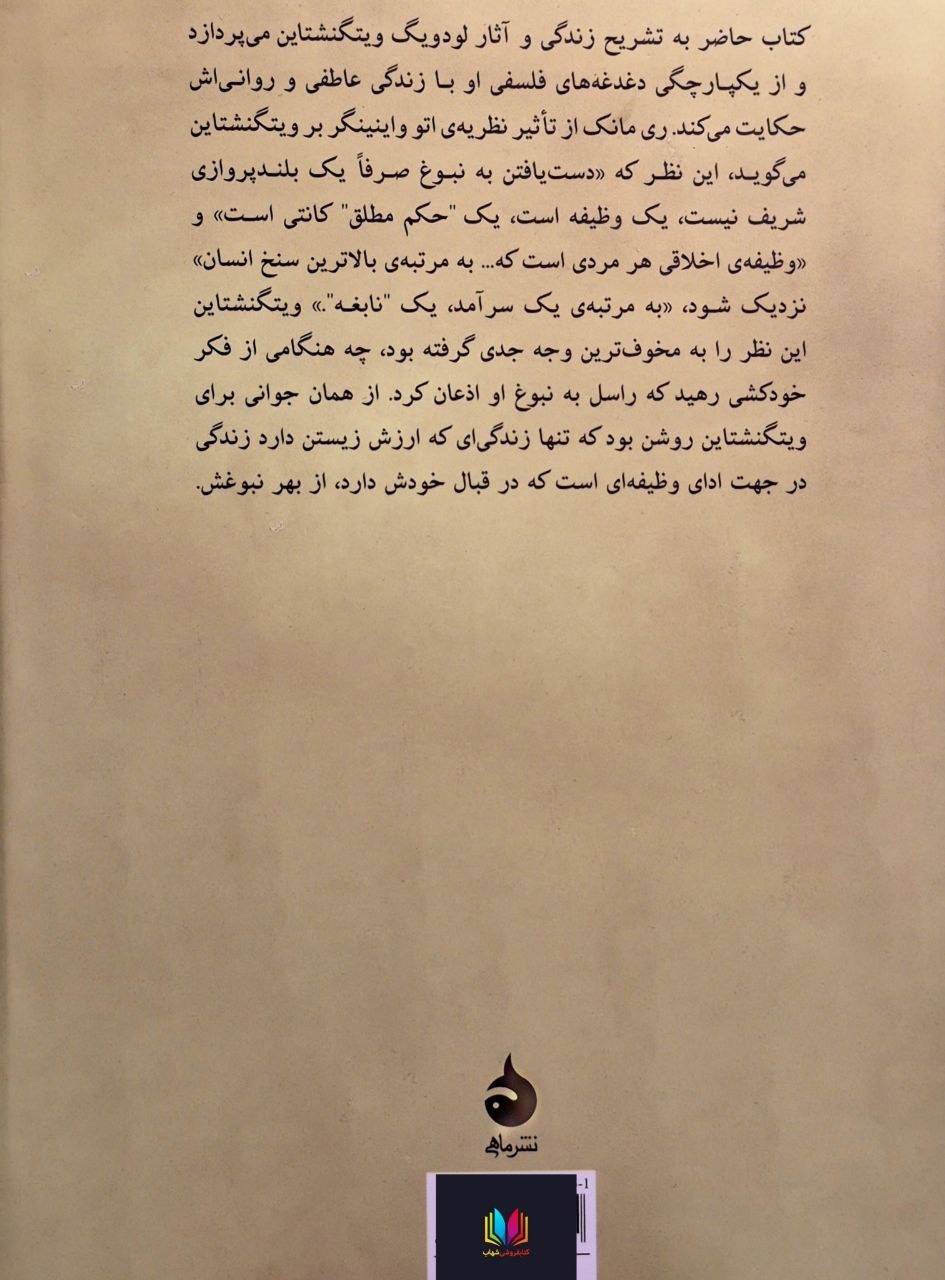 کتاب حاضر به تشریح زندگی و آثار لودویگ ویتگنشتاین می‌پردازد
و از یکپارچگی دغدغه‌های فلسفی او با زندگی عاطفی و روانی‌اش
حکایت می‌کند. ری مانک از تأثیر نظریه‌ی اتو واینینگر بر ویتگنشتاین
می‌گوید، این نظر که «دست‌یافتن به نبوغ صرفاً یک بلندپروازی
شریف نیست، یک وظیفه است، یک "حکم مطلق" کانتی است» و
«وظیفه‌ی اخلاقی هر مردی است که... به مرتبه‌ی بالاترین سنخ انسان»
نزدیک شود، «به مرتبه‌ی یک سرآمد، یک "نابغه".» ویتگنشتاین
این نظر را به مخوف‌ترین وجه جدی گرفته بود، چه هنگامی از فکر
خودکشی رهید که راسل به نبوغ او اذعان کرد. از همان جوانی برای
ویتگنشتاین روشن بود که تنها زندگی‌ای که ارزش زیستن دارد زندگی
در جهت ادای وظیفه‌ای است که در قبال خودش دارد، از بهر نبوغش.
نشرماهی
-1
کتابفروشی شهاب